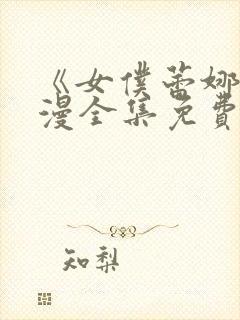 《女僕蕾娜
漫全集免費
知梨